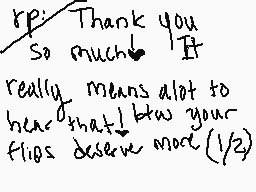 rp: Thank you
so much! It
really means alot to
hear that! btw your
flips deserve more (1/2)